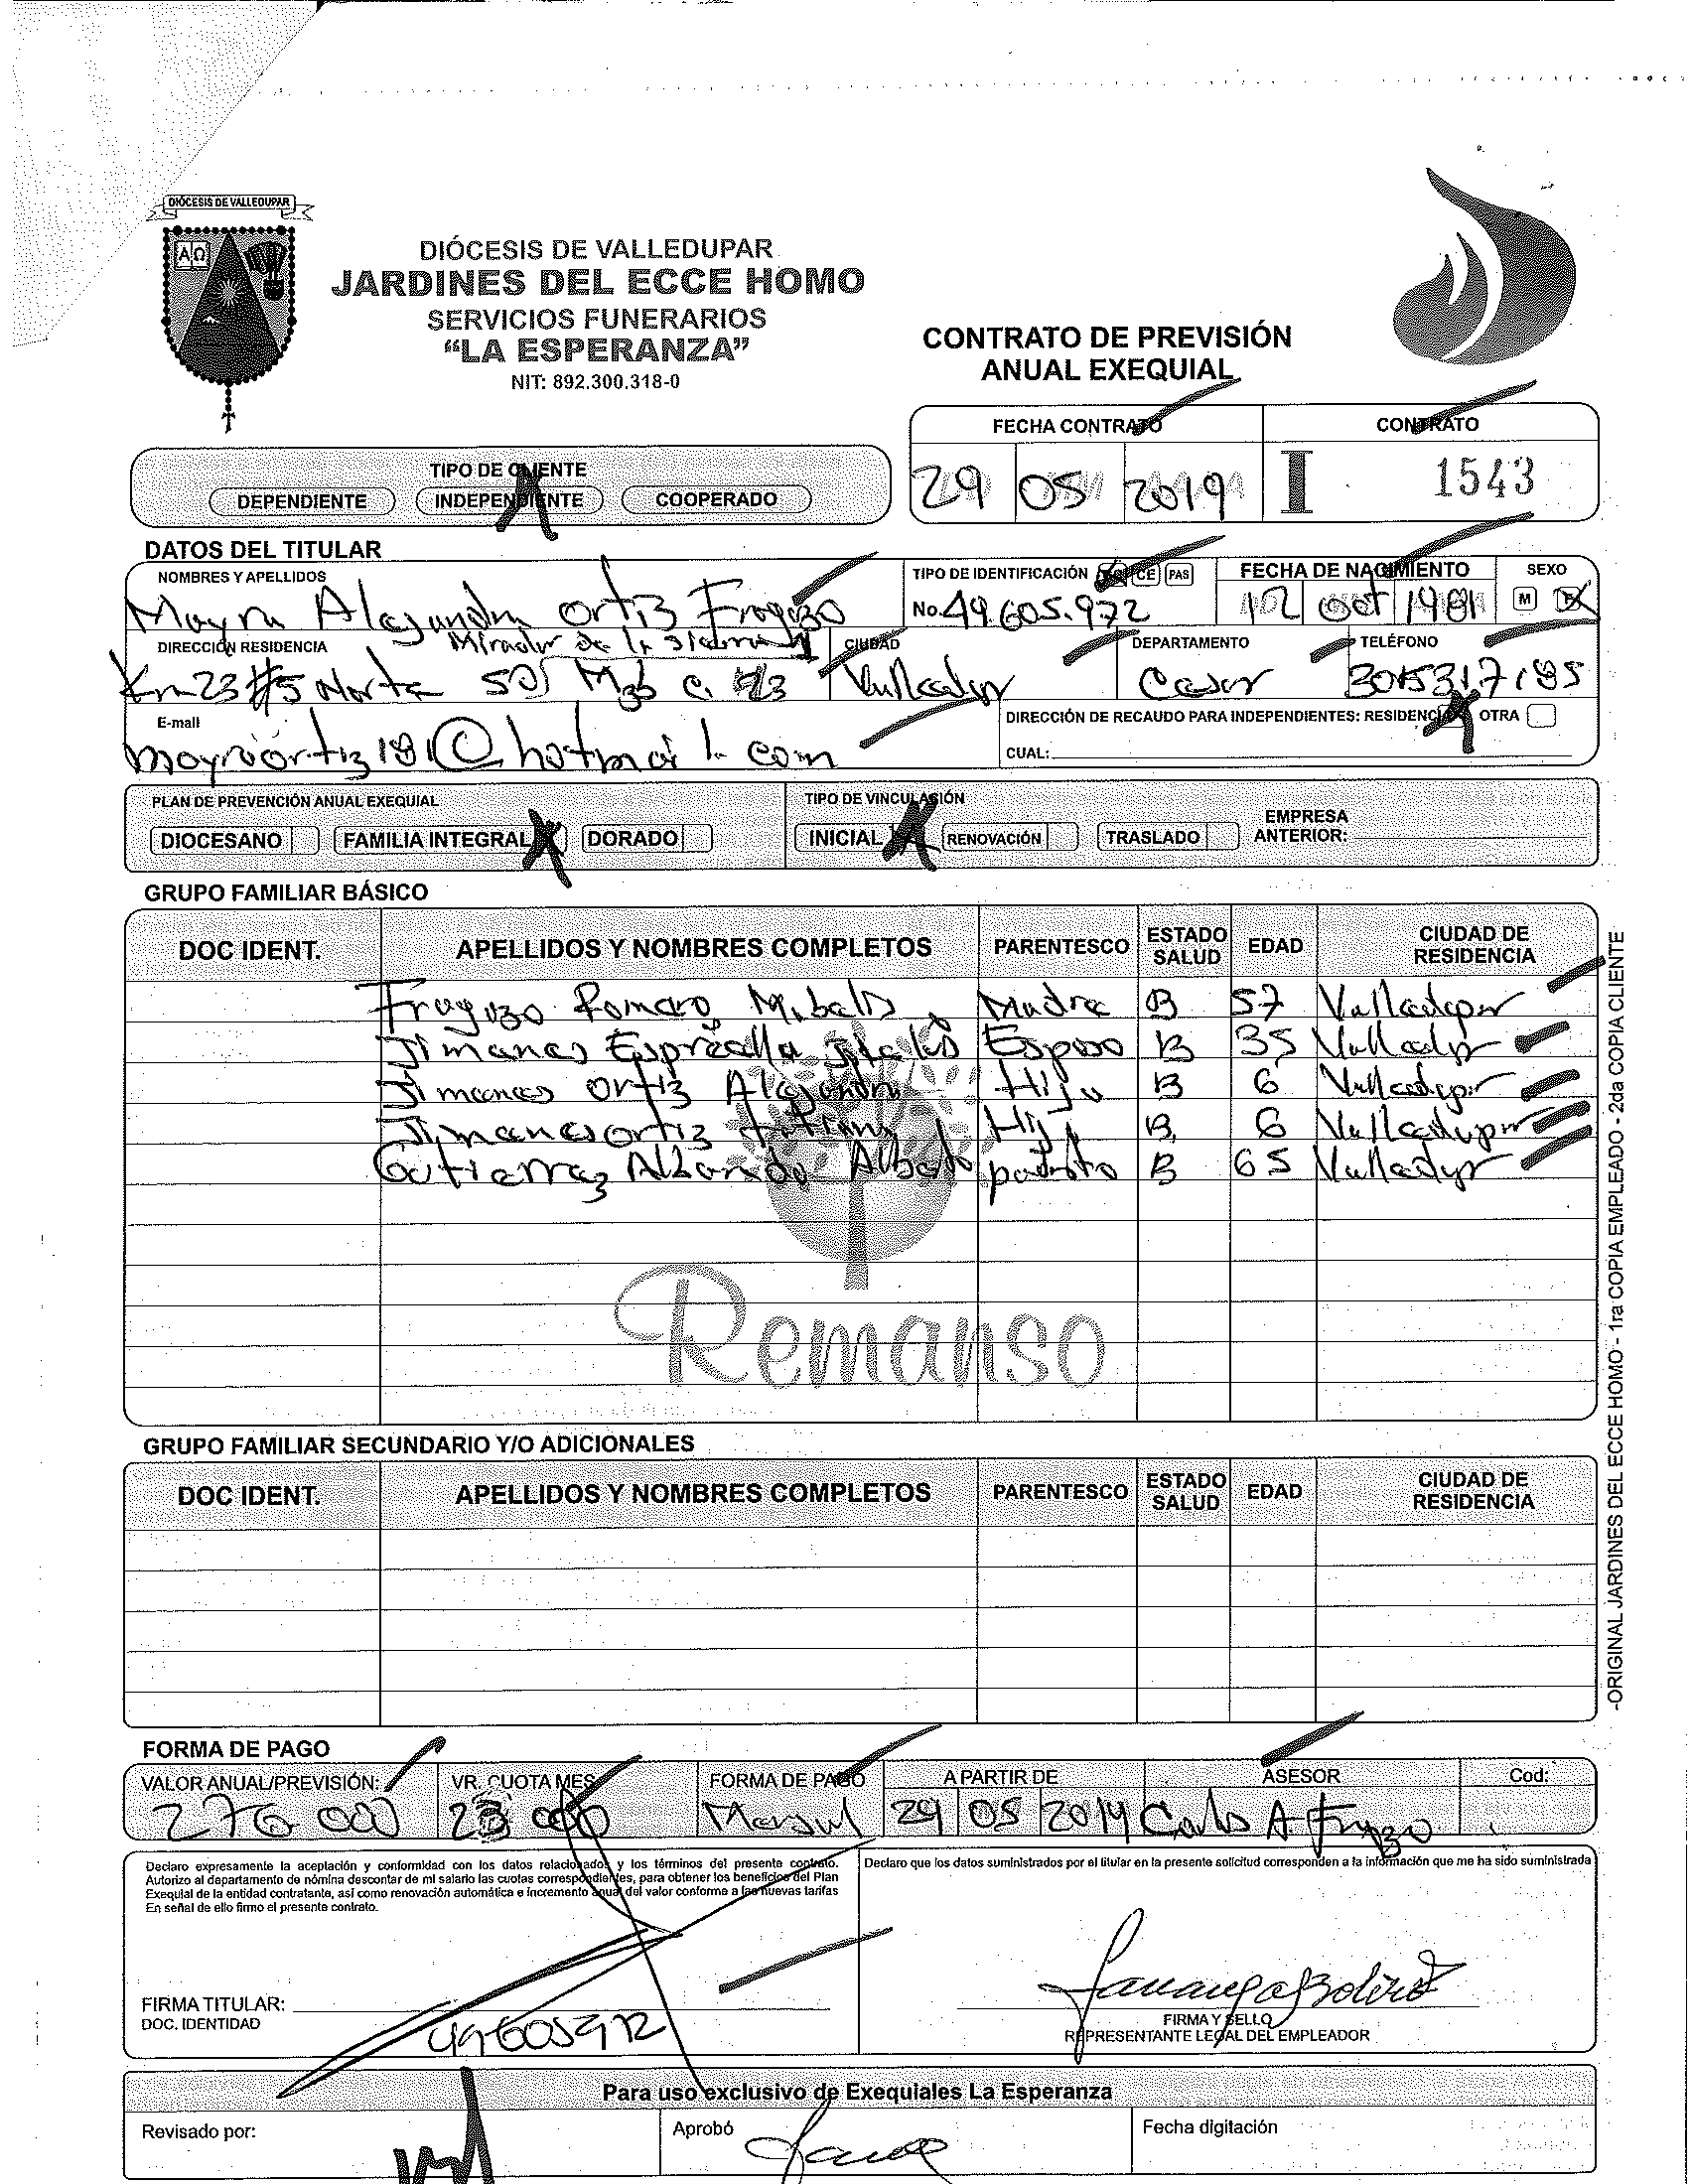 DIÓCESIS DE VALLEDUPAR
AΩ
DIÓCESIS DE VALLEDUPAR
JARDINES DEL ECCE HOMO
SERVICIOS FUNERARIOS
“LA ESPERANZA”
NIT: 892.300.318-0
CONTRATO DE PREVISIÓN
ANUAL EXEQUIAL
FECHA CONTRATO CONTRATO
29 05 2019 I 1543
TIPO DE CLIENTE
DEPENDIENTE INDEPENDIENTE COOPERADO
DATOS DEL TITULAR
NOMBRES Y APELLIDOS TIPO DE IDENTIFICACIÓN CE PAS FECHA DE NACIMIENTO SEXO
Mayra Alejandra Ortiz Fragozo No. 49.605.972 12 oct 1981 M F
DIRECCIÓN RESIDENCIA Mirador de la sierra 1 CIUDAD DEPARTAMENTO TELÉFONO
Norte C. Valledupar Cesar 3015317185
E-mail DIRECCIÓN DE RECAUDO PARA INDEPENDIENTES: RESIDENCIA OTRA
mayraortiz181@hotmail.com CUAL:
PLAN DE PREVENCIÓN ANUAL EXEQUIAL TIPO DE VINCULACIÓN
DIOCESANO FAMILIA INTEGRAL DORADO INICIAL RENOVACIÓN TRASLADO EMPRESA
ANTERIOR:
GRUPO FAMILIAR BÁSICO
DOC IDENT. APELLIDOS Y NOMBRES COMPLETOS PARENTESCO ESTADO SALUD EDAD CIUDAD DE RESIDENCIA
Fragozo Romero Mibelis Madre B 57 Valledupar
Jimenes Espreolla Esposo B 35 Valledupar
Jimenes Ortiz Alejandra Hija B 6 Valledupar
Jimenes Ortiz Tatiana Hija B 6 Valledupar
Gutierrez Alberto padrasto B 65 Valledupar
Remanso
GRUPO FAMILIAR SECUNDARIO Y/O ADICIONALES
DOC IDENT. APELLIDOS Y NOMBRES COMPLETOS PARENTESCO ESTADO SALUD EDAD CIUDAD DE RESIDENCIA
-ORIGINAL JARDINES DEL ECCE HOMO - 1ra COPIA EMPLEADO - 2da COPIA CLIENTE
FORMA DE PAGO
VALOR ANUAL/PREVISIÓN: VR. CUOTA MES FORMA DE PAGO A PARTIR DE ASESOR Cod:
276 000 23 000 Mensual 29 05 2019 Carlos A. Fragozo
Declaro expresamente la aceptación y conformidad con los datos relacionados y los términos del presente contrato.
Autorizo al departamento de nómina descontar de mi salario las cuotas correspondientes, para obtener los beneficios del Plan
Exequial de la entidad contratante, así como renovación automática e incremento anual del valor conforme a las nuevas tarifas
En señal de ello firmo el presente contrato.
Declaro que los datos suministrados por el titular en la presente solicitud corresponden a la información que me ha sido suministrada
FIRMA TITULAR:
DOC. IDENTIDAD
49605972
FIRMA Y SELLO
REPRESENTANTE LEGAL DEL EMPLEADOR
Para uso exclusivo de Exequiales La Esperanza
Revisado por: Aprobó Fecha digitación